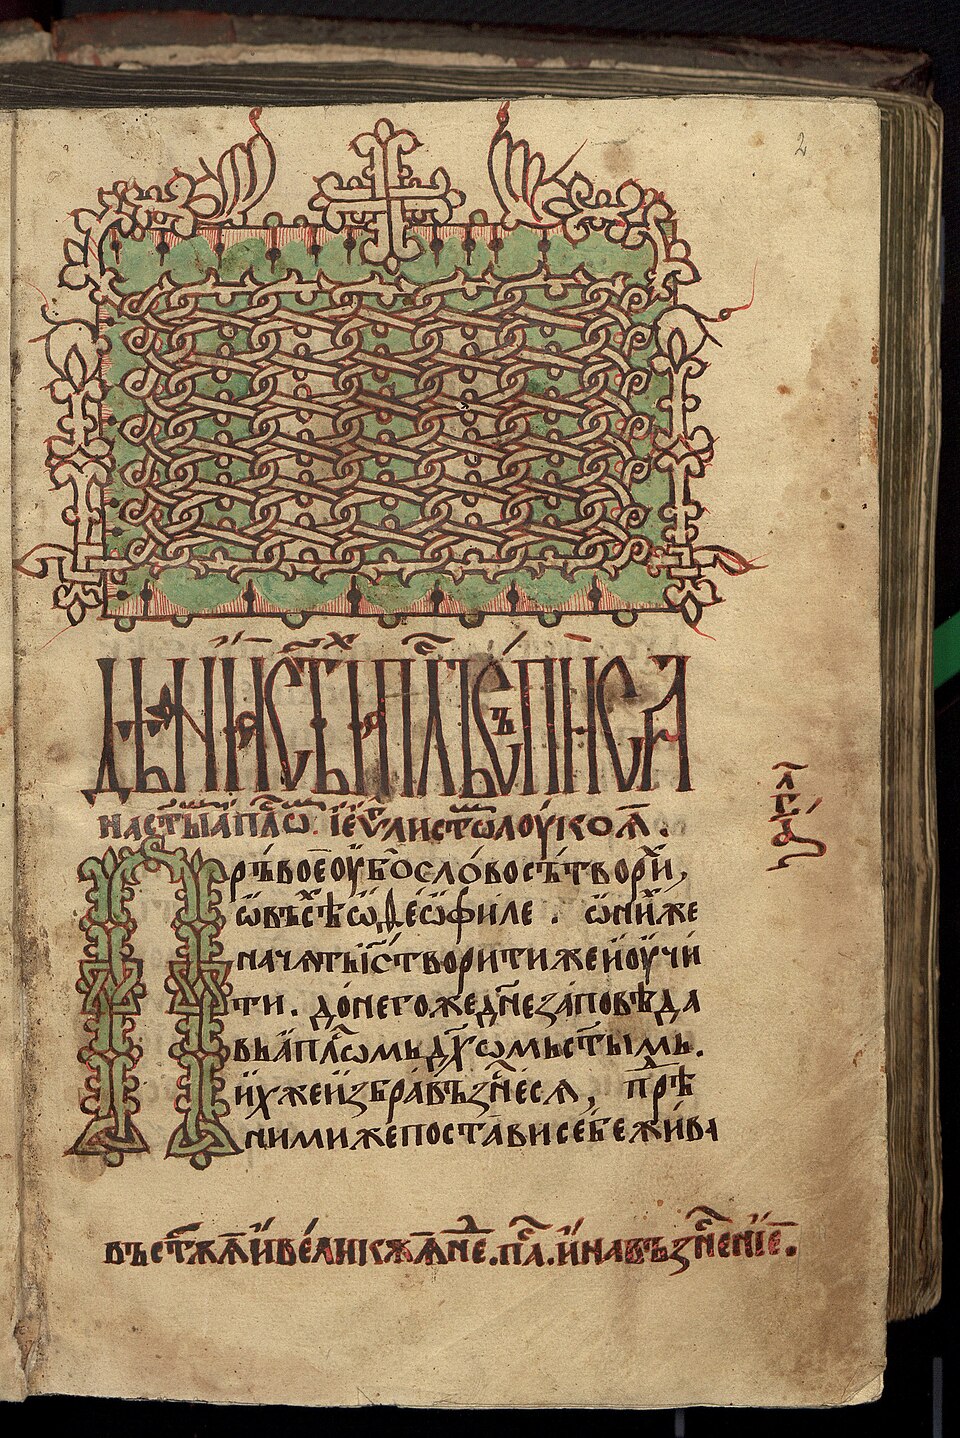 2
Дѣанїи ст҃ыи҆х ап҃лъ съписа
на ст҃ыⷨ ап҃лѡⷨ. і҆ е҆ѵⷢ҇листѡⷨ лоукоѧ.
Прьвое оубо слово сътвориⷯ,
ѡ въсѣⷯ ѡ ѳеѡфиле. ѡ ниⷯже
начѧтъ і҃с творити же и оучи
ти. до него же дн҃е заповѣда
вь ап҃лѡмь дх҃ѡмь ст҃ымь.
иⷯже избра възнесѧ, прⷣѣ
ними же постави себе жива
л҃
въ ст҃ѫѧ и великѫѧ неⷣ. пⷭ҇ха. и на възнⷭ҇енїе.